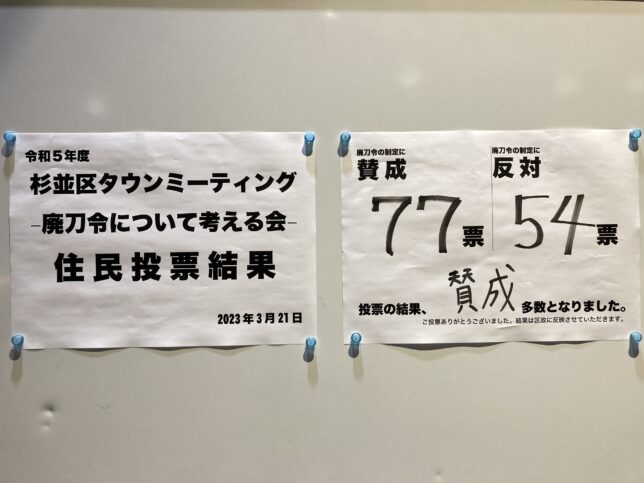 令和5年度
杉並区タウンミーティング
−廃刀令について考える会−
住民投票結果
2023年3月21日
廃刀令の制定に
賛成
77票
廃刀令の制定に
反対
54票
投票の結果、賛成多数となりました。
ご投票ありがとうございました。結果は区政に反映させていただきます。